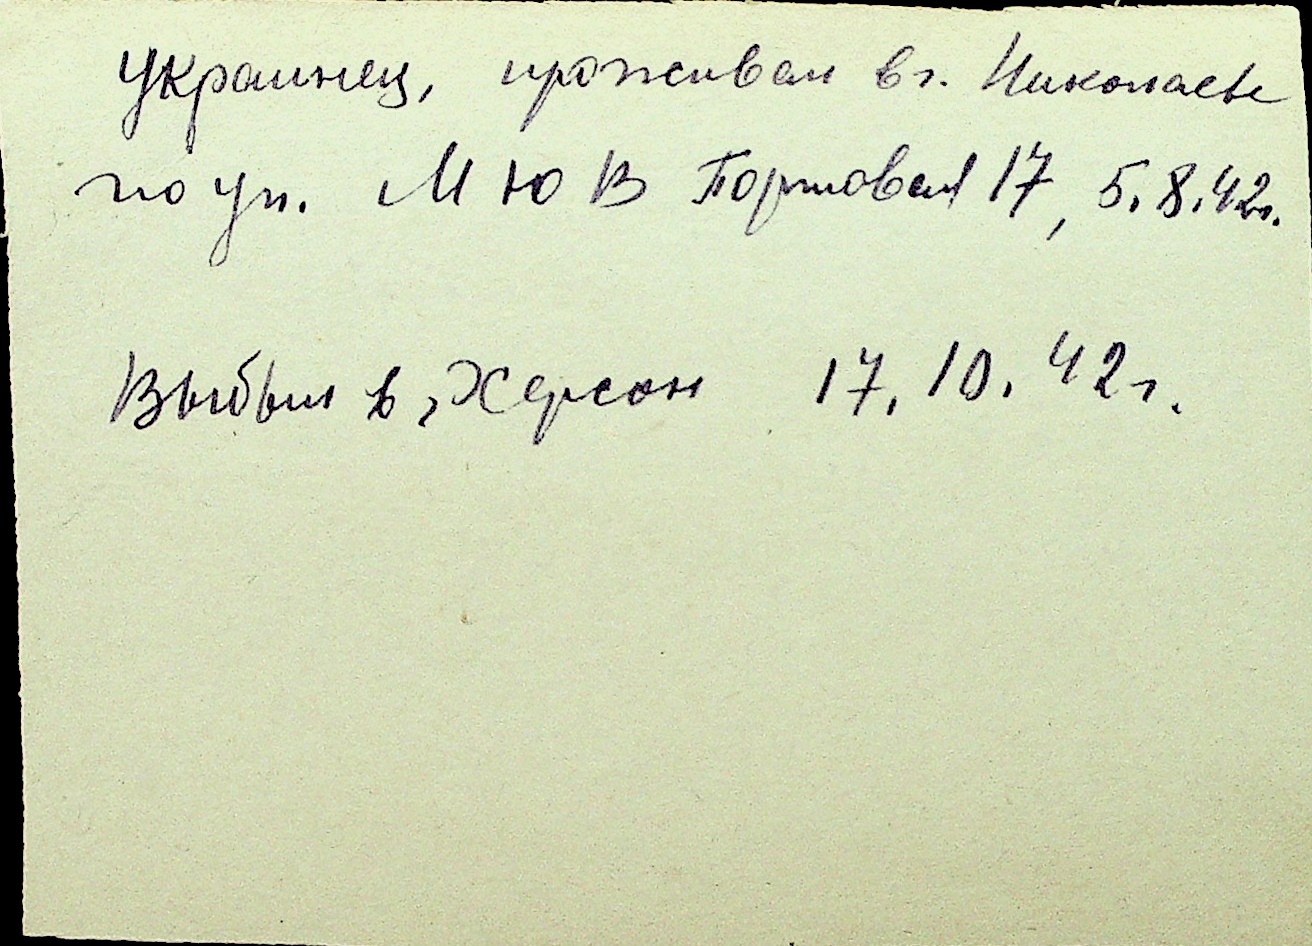 Украинец, проживал в г. Николаеве
по ул. М Ю В Портовая 17, 5.8.42г.
Выбыл в г. Херсон 17.10.42г.